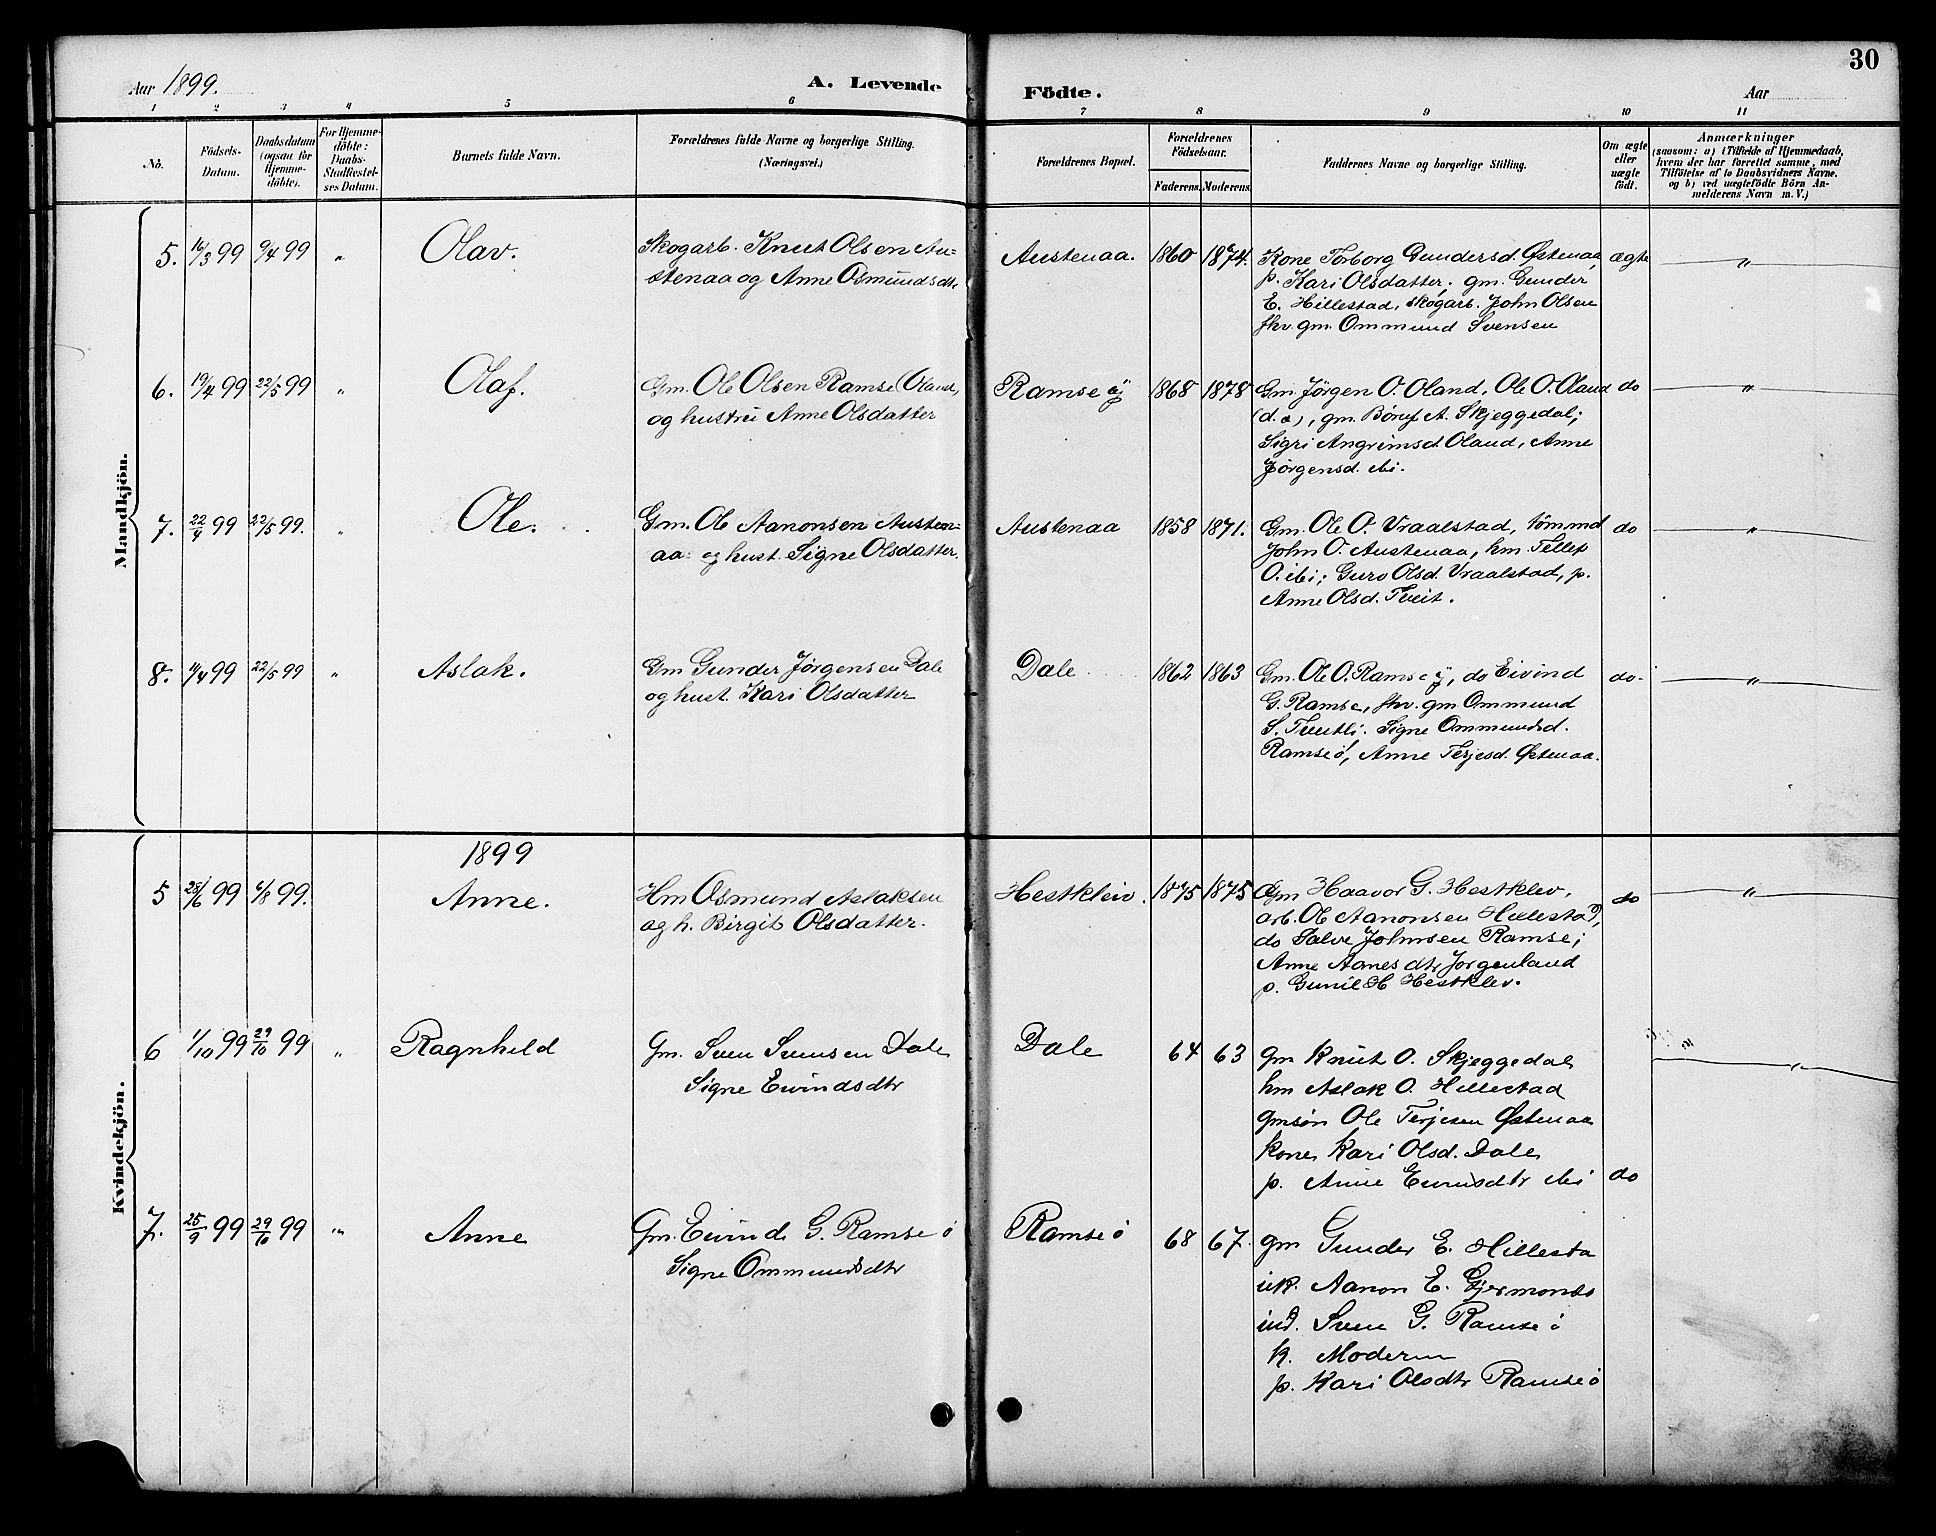 30
Aar 1899.
A. Levende Födte.
Aar
1 2 3 4 5 6 7 8 9 10 11
No.
Födsels-Datum.
Daabsdatum (ogsaa för Hjemme-döbte).
For Hjemme-döbte: Daabs-Stadfæstel-ses Datum.
Barnets fulde Navn.
Forældrenes fulde Navne og borgerlige Stilling.
(Næringsvei.)
Forældrenes Bopæl.
Forældrenes Födselsaar.
Faderens. Moderens.
Faddernes Navne og borgerlige Stilling.
Om ægte eller uægte födt.
Anmærkninger
(saasom: a) i Tilfælde af Hjemmedaab,
hvem der har forrettet samme, med
Tilföielse af to Daabsvidners Navne.
og b) ved uægtefödte Börn An-
melderens Navn m. V.)
Mandkjön.
5. 16/3 99 9/4 99 " Olav.
Skogarb. Knut Olsen Au-
stenaa og Anne Osmundsdtr
Austenaa. 1860 1874.
Kone Torborg Gundersd. Østenaa,
p. Kari Olsdatter; gm. Gunder
E. Hillestad, skogarb. John Olsen
fhv. gm. Ommund Svensen
ægte "
6. 19/4 99 22/5 99 " Olaf.
Gm. Ole Olsen Ramse (Oland,
og hustru Anne Olsdatter
Ramse ÿ 1868 1878
Gm. Jörgen O. Oland, Ole O. Oland
(d. æ), gm. Böruf A. Skjeggedal;
Sigri Angrimsd. Oland, Anne
Jörgensd. ibi.
do "
7. 22/4 99 22/5 99. " Ole.
Gm. Ole Aanonsen Austen-
aa: og hust. Signe Olsdatter.
Austenaa 1858 1871.
Gm. Ole O. Vraalstad, tömmd
John O. Austenaa, hm. Tellef
O. ibi; Guro Olsd. Vraalstad, p.
Anne Olsd. Tveit.
do "
8. 11/4 99 22/5 99 " Aslak.
Gm Gunder Jørgensen Dale
og hust. Kari Olsdatter
Dale 1862 1863
Gm. Ole O. Ramse ÿ, do Eivind
G. Ramse, fhv. gm Ommund
S. Tveitli. Signe Ommundsd.
Ramseö, Anne Terjesd. Østenaa.
do "
Kvindekjön.
1899
5 25/6 99 6/8 99. Anne.
Hm Osmund Aslaksen
og h. Birgit Olsdatter.
Hestkleiv. 1875 1875
Gm Haavor G. Hestklev,
arb. Ole Aanonsen Hillestad,
do Salve Johnsen Ramse;
Anne Aanesdtr Jorgenland
p. Gunil H Hestklev.
do "
6 1/10 99 29/10 99 " Ragnhild
Gm. Sven Svensen Dale
Signe Eivindsdtr
Dale 64 63
gm Knut O. Skjeggedal
hm Aslak O. Hillestad
gmsön Ole Terjesen Østenaa
Kone Kari Olsd. Dale
p. Anne Eivindsdtr ibi
do "
7. 25/9 99 29/10 99 " Anne
Gm. Eivind G. Ramse ö
Signe Ommundsdtr
Ramse ö 68 67.
gm Gunder E. Hillesta
uk. Aanon E. Gjermonds
ind. Sven G. Ramse ö
K. Moderen
p. Kari Olsdtr Ramse ö